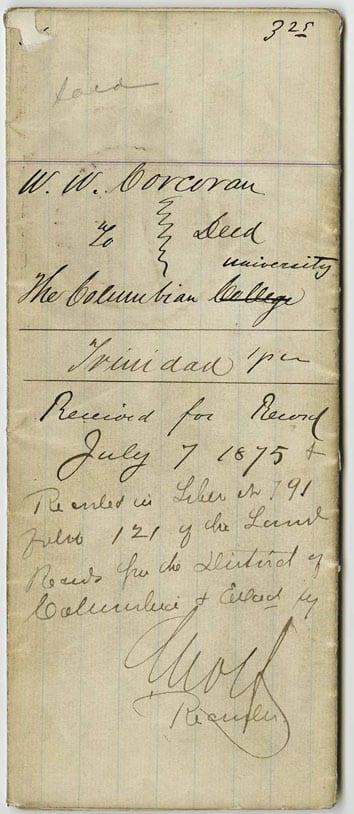 3 25
W. W. Corcoran
To Deed
University
The Columbian College
Trinidad
Received for Record
July 7 1875 &
Recorded in Liber No 791
folio 121 of the Land
Records for the District of
Columbia & Exd by
Recorder